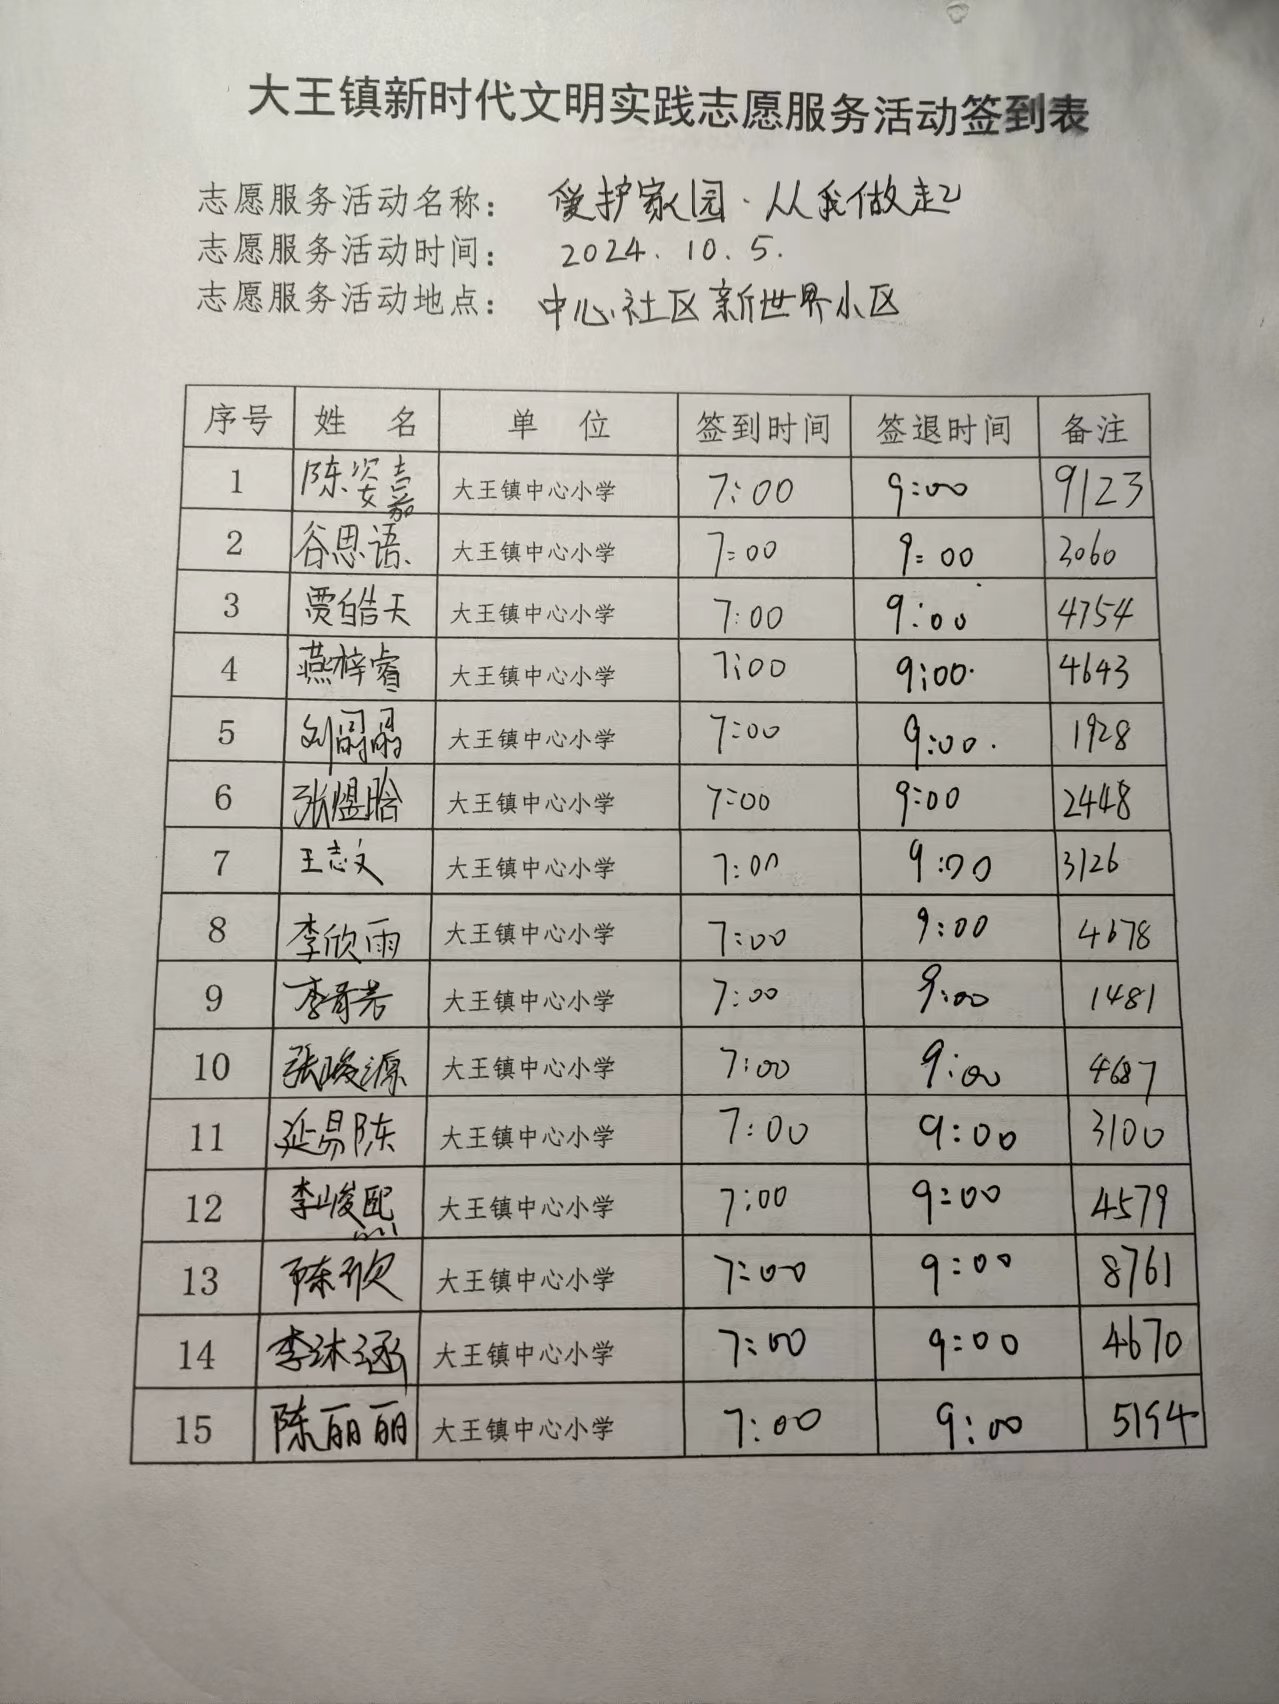 大王镇新时代文明实践志愿服务活动签到表
志愿服务活动名称： 爱护家园·从我做起
志愿服务活动时间： 2024.10.5.
志愿服务活动地点： 中心社区新世界小区
序号 姓 名 单 位 签到时间 签退时间 备注
1 陈姿嘉 大王镇中心小学 7:00 9:00 9123
2 谷思语 大王镇中心小学 7:00 9:00 3060
3 贾皓天 大王镇中心小学 7:00 9:00 4754
4 燕梓睿 大王镇中心小学 7:00 9:00 4643
5 大王镇中心小学 7:00 9:00 1928
6 张煜晗 大王镇中心小学 7:00 9:00 2448
7 王志文 大王镇中心小学 7:00 9:00 3126
8 李欣雨 大王镇中心小学 7:00 9:00 4678
9 大王镇中心小学 7:00 9:00 1481
10 张峻源 大王镇中心小学 7:00 9:00 4687
11 延易陈 大王镇中心小学 7:00 9:00 3100
12 李峻熙 大王镇中心小学 7:00 9:00 4579
13 陈欣 大王镇中心小学 7:00 9:00 8761
14 李沐涵 大王镇中心小学 7:00 9:00 4670
15 陈丽丽 大王镇中心小学 7:00 9:00 5194